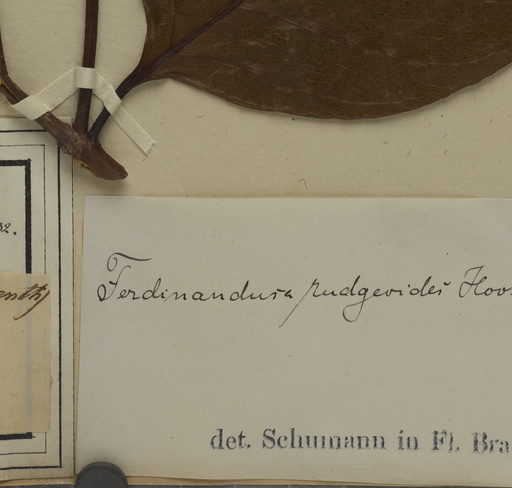 32.
Ferdinandusa rudgeoides Hoo
det. Schumann in Fl. Bra